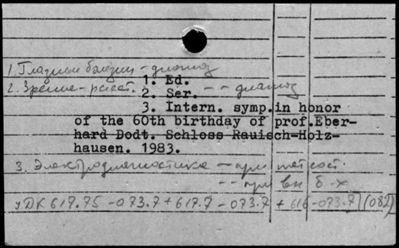 1. Глазные болезни - диагноз
1. Ed.
2. Зрение - расст. - - диагноз
2. Ser.
3. Intern. symp.in honor
of the 60th birthday of prof.Eber-
hard Dodt. Schloss Rauisch-Holz-
hausen. 1983.
3. Электродиагностика - при пат. сост.
- - при вн. б-х
УДК 617.75 -073.7 + 617.7 - 073.7 + 616-073.7 (082)